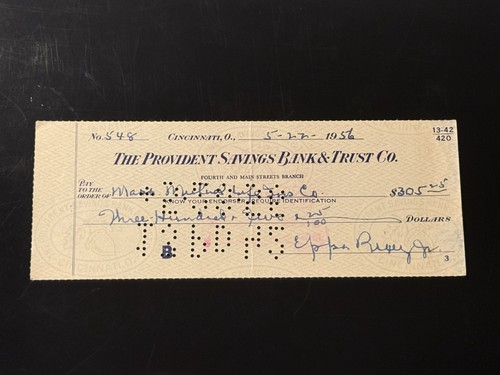 No. 548 CINCINNATI, O., 5-22- 1956
13-42
420
THE PROVIDENT SAVINGS BANK & TRUST CO.
FOURTH AND MAIN STREETS BRANCH
PAY TO THE ORDER OF Mass Mutual Life Ins Co. $305.25
KNOW YOUR ENDORSER - REQUIRE IDENTIFICATION
Three Hundred & five & 25/100 DOLLARS
B
Eppa Rixey Jr.
3